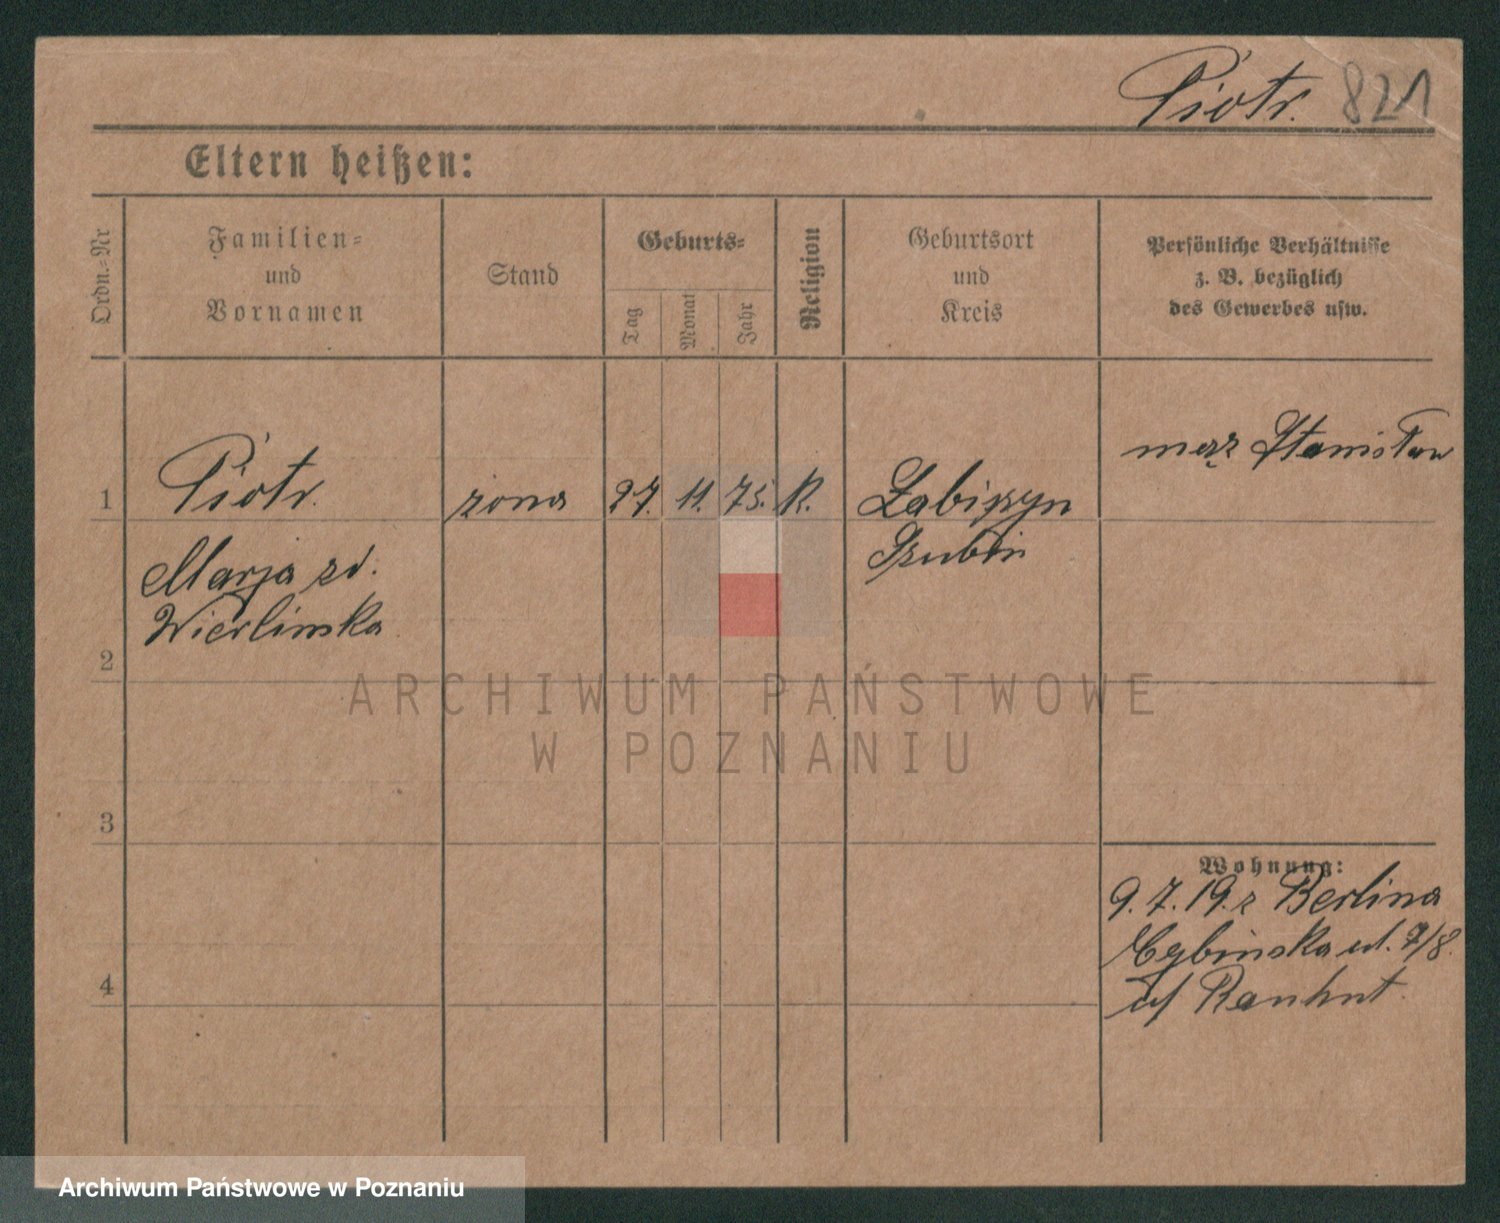 Piotr. 821
Eltern heißen:
Ordn.=Nr
Familien=
und
Vornamen
Stand
Geburts=
Tag
Monat
Jahr
Religion
Geburtsort
und
Kreis
Persönliche Verhältnisse
z. B. bezüglich
des Gewerbes usw.
mąż Stanisław
1 Piotr. żona 27. 11. 75. K. Łabiszyn
Marja zd. Szubin
Wierlinska
2
3
4
Wohnung:
9. 7. 19. z Berlina
Cybinska ul. 7/8.
u/ Ranhut.
ARCHIWUM PAŃSTWOWE
W POZNANIU
Archiwum Państwowe w Poznaniu